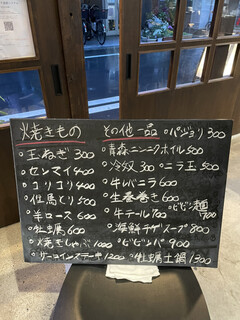 焼きもの
○玉ねぎ 300
○センマイ 400
○コリコリ 400
○但馬どり 500
○羊ロース 600
○牡蠣 600
○焼きしゃぶ 1000
○サーロインステーキ 1200
その他一品
○パジョリ 300
○青森ニンニクホイル 500
○冷奴 300
○ニラ玉 500
○牛レバニラ 600
○生春巻き 600
○牛テール 700
○ビビン麺 700
○海鮮チゲスープ 800
○ビビンバ 900
○牡蠣土鍋 1300